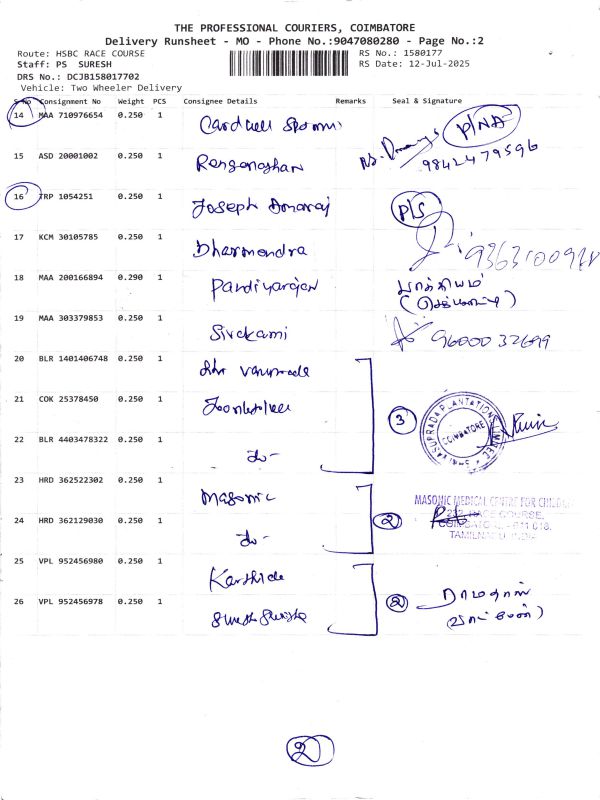 THE PROFESSIONAL COURIERS, COIMBATORE
Delivery Runsheet - MO - Phone No.:9047080280 - Page No.:2
Route: HSBC RACE COURSE
RS No.: 1580177
Staff: PS SURESH
RS Date: 12-Jul-2025
DRS No.: DCJB158017702
Vehicle: Two Wheeler Delivery
S No Consignment No Weight PCS Consignee Details Remarks Seal & Signature
14 MAA 710976654 0.250 1 P/NA
15 ASD 20001002 0.250 1 9842479596
16 TRP 1054251 0.250 1 Joseph P/S
17 KCM 30105785 0.250 1 Dharmendra
18 MAA 200166894 0.290 1 Pandiyarajan
19 MAA 303379853 0.250 1 Sivakami 9600032699
20 BLR 1401406748 0.250 1
21 COK 25378450 0.250 1 3
COIMBATORE
22 BLR 4403478322 0.250 1 do-
23 HRD 362522302 0.250 1 Masonic
MASONIC MEDICAL CENTRE FOR CHILD
RACE COURSE,
24 HRD 362129030 0.250 1 do- 2
TAMILNADU, INDIA
25 VPL 952456980 0.250 1
26 VPL 952456978 0.250 1 2
2